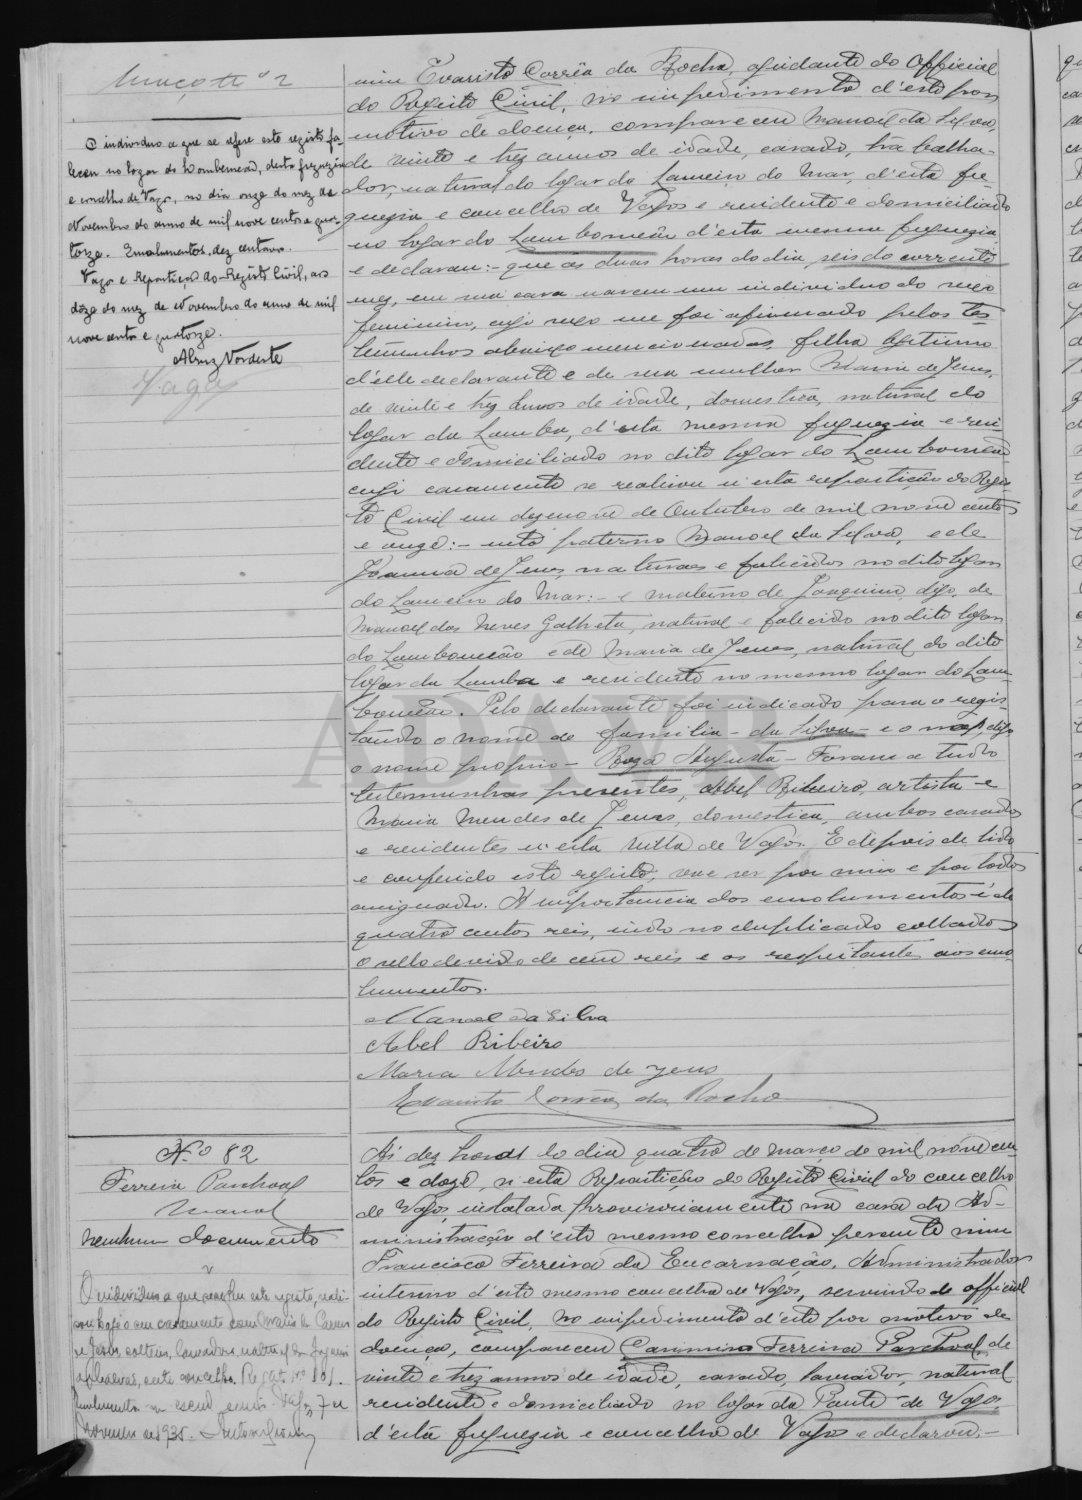 Maço nº 2
O individuo a que se refere este registo fa-
leceu no logar do Lombomeão, desta freguezia
e concelho de Vagos, no dia onze do mez de
Novembro do anno de mil nove centos e qua-
torze. Emolumentos, dez centavos.
Vagos e Repartição do Registo Civil, aos
doze do mez de Novembro do anno de mil
nove centos e quatorze.
Vagos
mim Evaristo Corrêa da Rocha, ajudante do Official
do Registo Civil, no impedimento d'este por
motivo de doença, compareceu Manoel da Silva,
de vinte e trez annos de idade, casado, trabalha-
dor, natural do logar do Lameiro do Mar, d'esta fre-
guezia e concelho de Vagos e residente e domiciliado
no logar do Lombomeão d'esta mesma freguezia,
e declarou:- que ás duas horas do dia seis do corrente
mez, em sua casa nasceu um individuo do sexo
feminino, cujo sexo me foi afirmado pelas tes-
temunhas abaixo mencionadas, filha legitima
d'elle declarante e de sua mulher Maria de Jesus,
de vinte e trez annos de idade, domestica, natural do
logar da Lomba, d'esta mesma freguezia e resi-
dente e domiciliado no dito logar do Lombomeão
cujo casamento se realisou n'esta repartição do Regis-
to Civil em dezenove de Outubro de mil nove centos
e onze:- neto paterno Manoel da Silva, e de
Joanna de Jesus, naturaes e falecidos no dito logar
do Lameiro do Mar:- e materno de Joaquim, digo, de
Manoel das Neves Galheta, natural e falecido no dito logar
do Lombomeão e de Maria de Jesus, natural do dito
logar da Lomba e residente no mesmo logar do Lom-
bomeão. Pelo declarante foi indicado para o regis-
tando o nome de familia - da Silva - e o digo
o nome proprio - Roza Augusta - Foram a tudo
testemunhas presentes, Abel Ribeiro, artista e
Maria Mendes de Jesus, domestica, ambos casados
e residentes n'esta villa de Vagos. E depois de lido
e conferido este registo, vae ser por mim e por todos
assignado. A importancia dos emolumentos é de
quatro centos reis, indo no duplicado collados
o sello devido de cem reis e os respeitantes aos emo-
lumentos.
Manoel da Silva
Abel Ribeiro
Maria Mendes de Jesus
Evaristo Corrêa da Rocha
ADAVR
N.º 82
Ferreira Paschoal
Manoel
Nenhum documento
O individuo a que respeita este registo, reali-
sou hoje o seu casamento com Maria
solteira, natural
Vagos, 7 de
Novembro de 1935.
Ás dez horas do dia quatro de março de mil nove cen-
tos e doze, n'esta Repartição do Registo Civil do concelho
de Vagos, installada provisoriamente na casa da Ad-
ministração d'este mesmo concelho perante mim
Francisco Ferreira da Encarnação, Administrador
interino d'este mesmo concelho de Vagos, servindo de official
do Registo Civil, no impedimento d'este por motivo de
doença, compareceu Casimiro Ferreira Paschoal, de
vinte e trez annos de idade, casado, lavrador, natural
residente e domiciliado no logar da Ponte de Vagos,
d'esta freguezia e concelho de Vagos e declarou:-